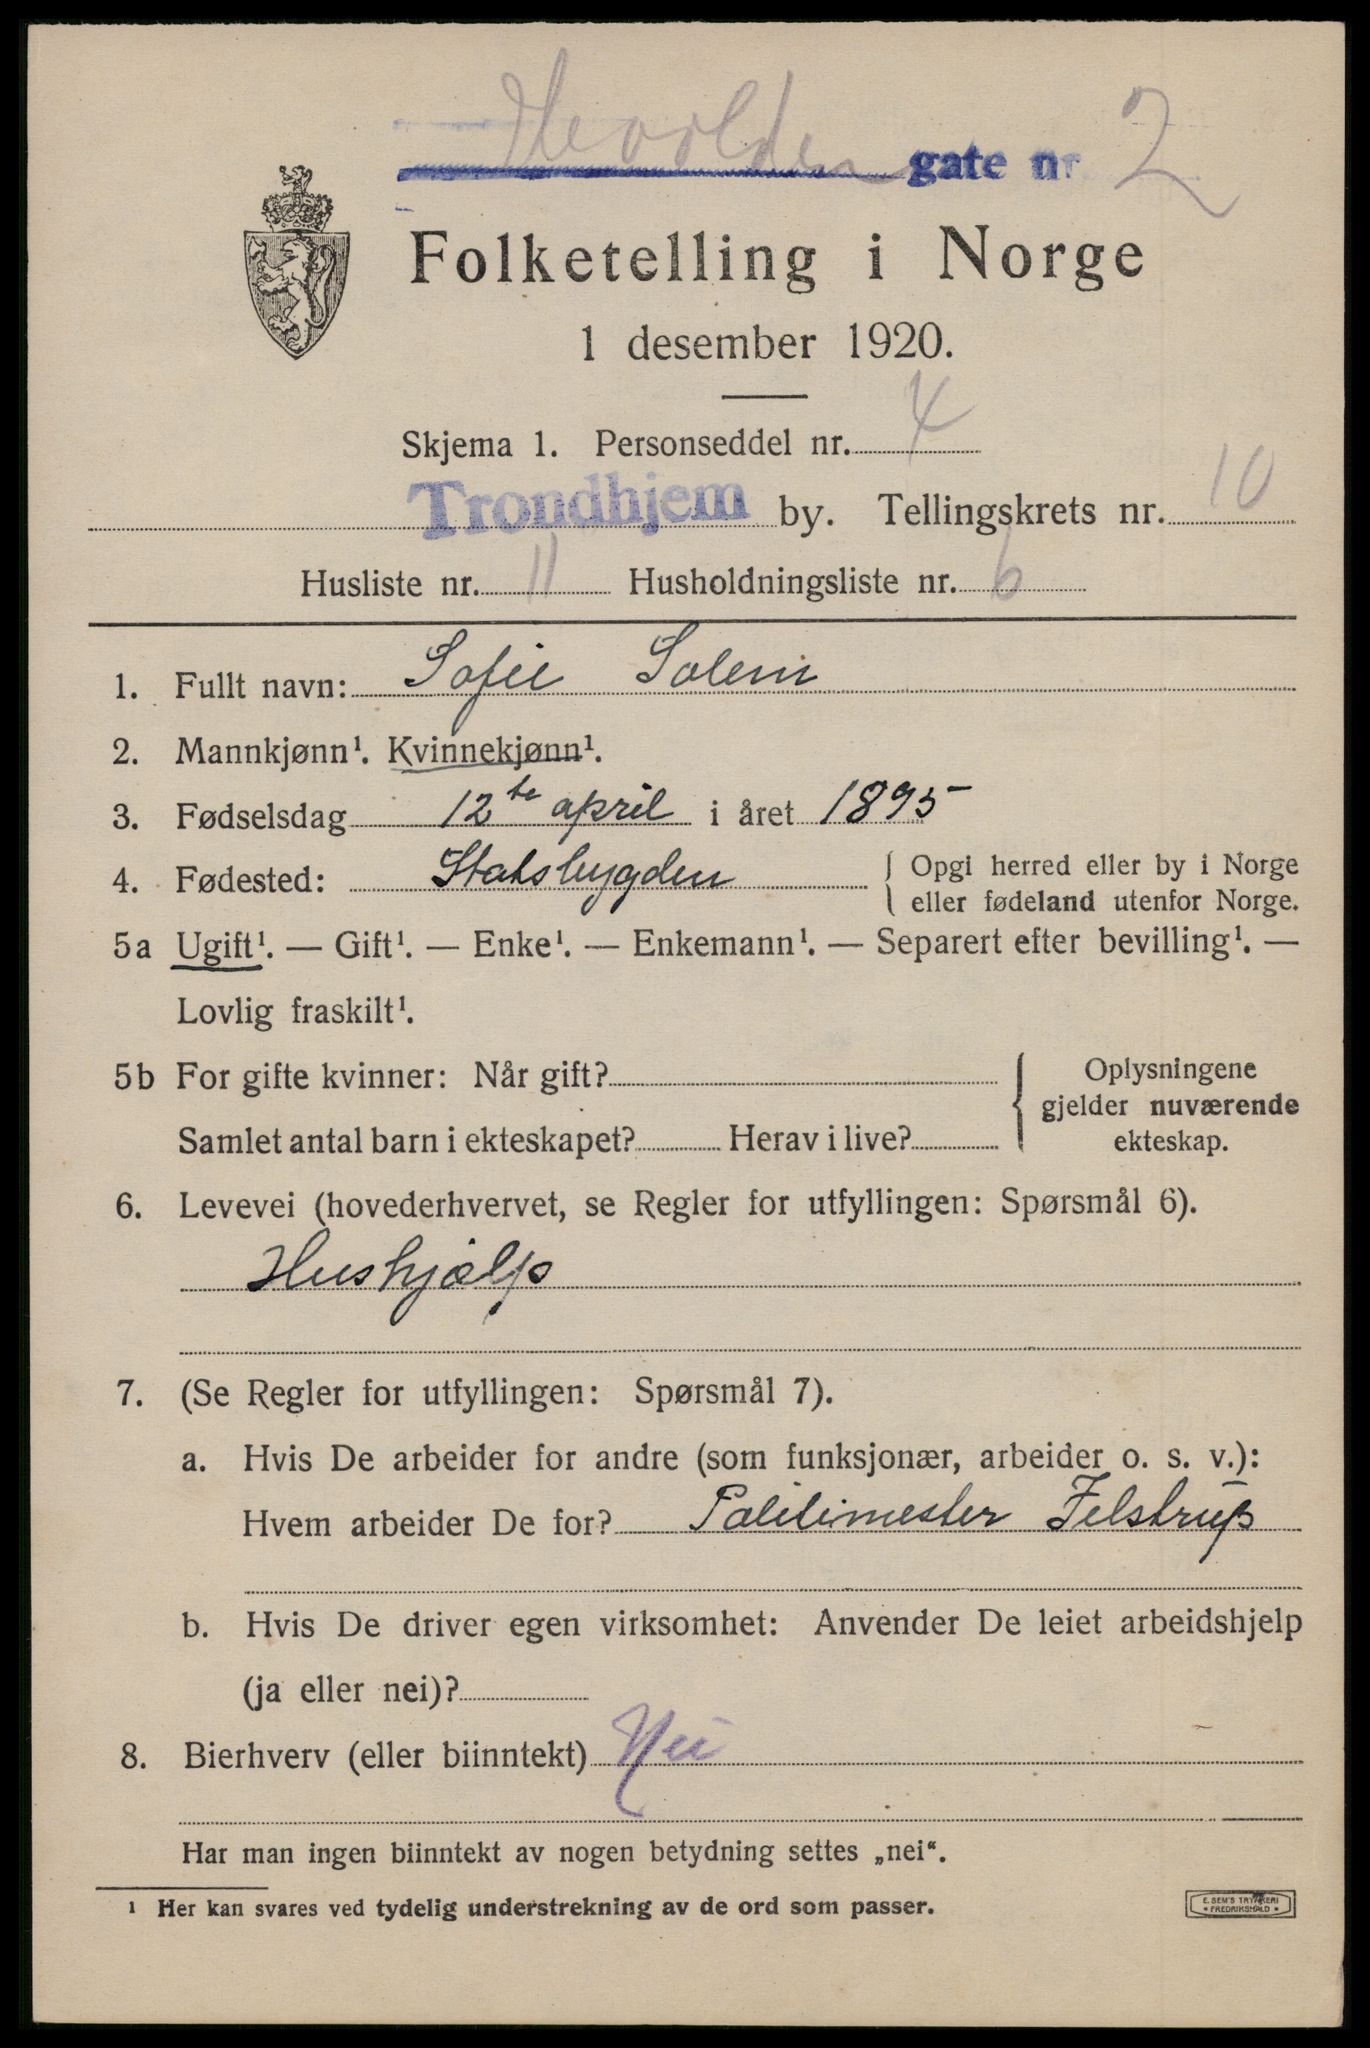 Hevolden gate nr. 2
Folketelling i Norge
1 desember 1920.
Skjema 1. Personseddel nr. 4
Trondhjem by. Tellingskrets nr. 10
Husliste nr. 11 Husholdningsliste nr. 6
1. Fullt navn: Sofie Solem
2. Mannkjønn¹. Kvinnekjønn¹.
3. Fødselsdag 12te april i året 1895
4. Fødested: Statsbygden { Opgi herred eller by i Norge
eller fødeland utenfor Norge.
5a Ugift¹. — Gift¹. — Enke¹. — Enkemann¹. — Separert efter bevilling¹. —
Lovlig fraskilt¹.
5b For gifte kvinner: Når gift? { Oplysningene
gjelder nuværende
Samlet antal barn i ekteskapet? Herav i live? ekteskap.
6. Levevei (hovederhvervet, se Regler for utfyllingen: Spørsmål 6).
Hushjælp
7. (Se Regler for utfyllingen: Spørsmål 7).
a. Hvis De arbeider for andre (som funksjonær, arbeider o. s. v.):
Hvem arbeider De for? Politimester Jelstrup
b. Hvis De driver egen virksomhet: Anvender De leiet arbeidshjelp
(ja eller nei)?
8. Bierhverv (eller biinntekt) Nei
Har man ingen biinntekt av nogen betydning settes „nei“.
¹ Her kan svares ved tydelig understrekning av de ord som passer.
E. SEM'S TRYKKERI
* FREDRIKSHALD *